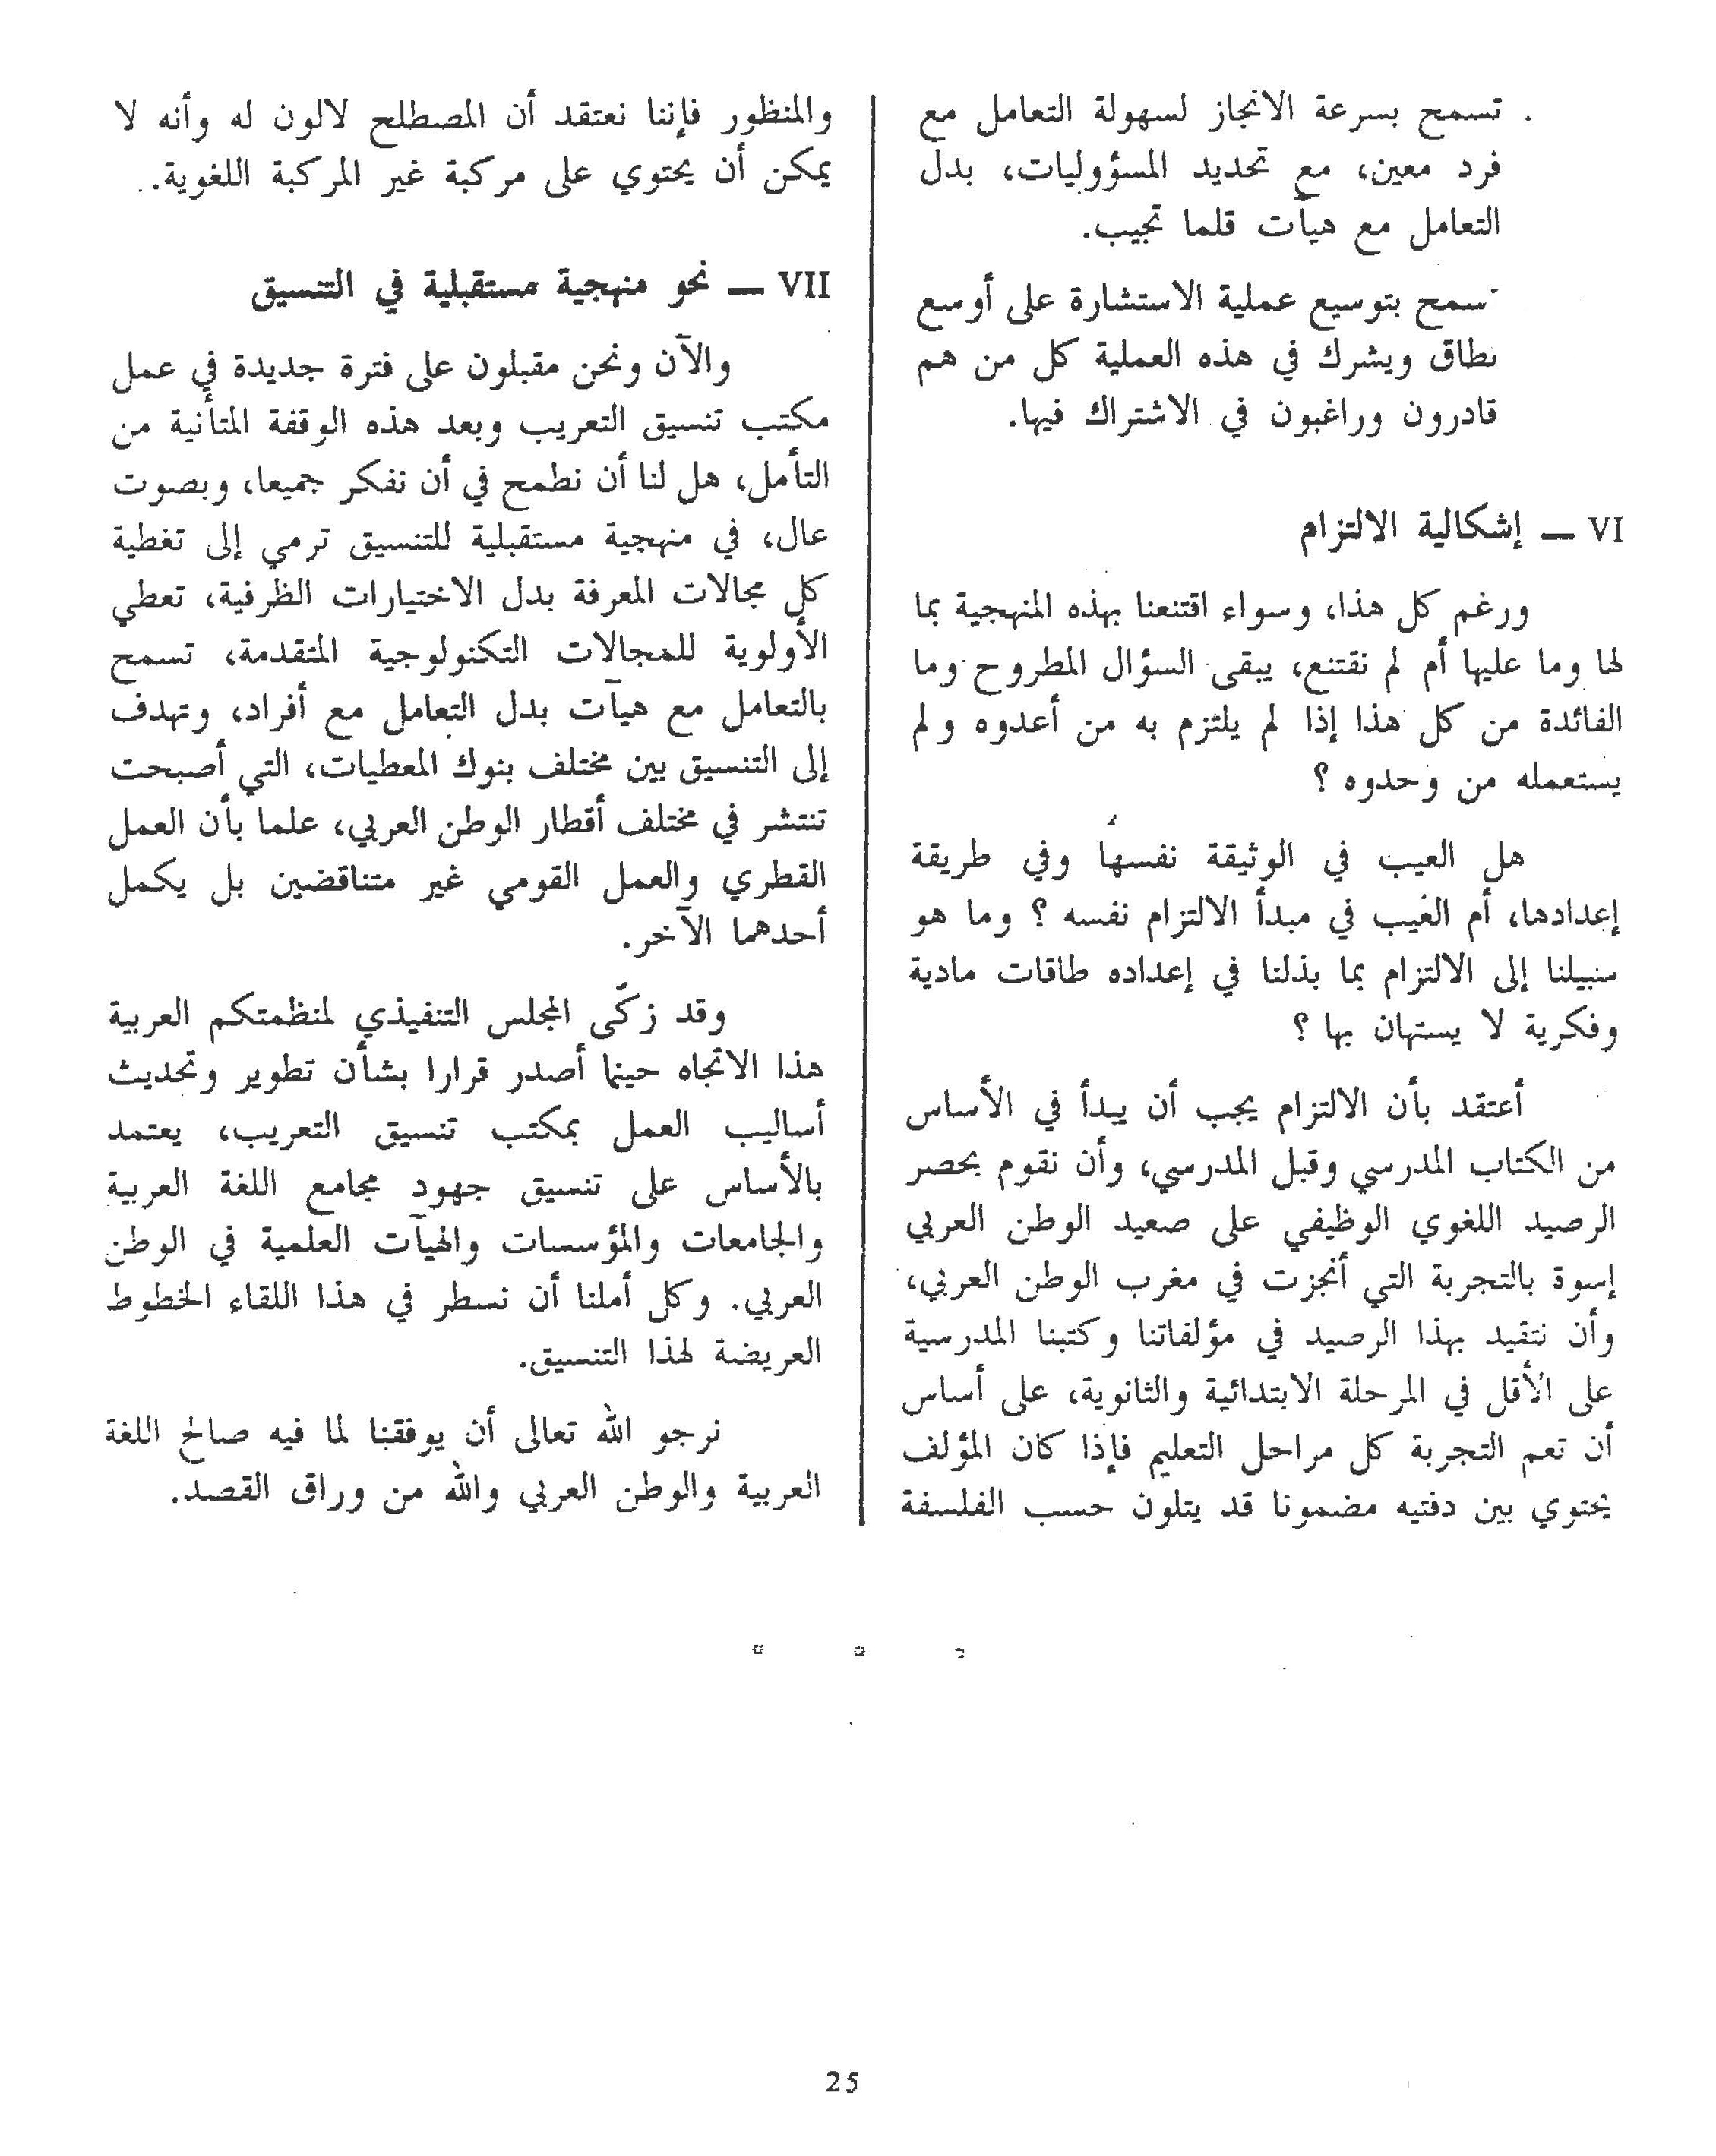 . تسمح بسرعة الانجاز لسهولة التعامل مع
فرد معين، مع تحديد المسؤوليات، بدل
التعامل مع هيآت قلما تجيب.
تسمح بتوسيع عملية الاستشارة على أوسع
نطاق ويشرك في هذه العملية كل من هم
قادرون وراغبون في الاشتراك فيها.
VI — إشكالية الالتزام
ورغم كل هذا، وسواء اقتنعنا بهذه المنهجية بما
لها وما عليها أم لم نقتنع، يبقى السؤال المطروح وما
الفائدة من كل هذا إذا لم يلتزم به من أعدوه ولم
يستعمله من وحدوه ؟
هل العيب في الوثيقة نفسها وفي طريقة
إعدادها، أم العيب في مبدأ الالتزام نفسه ؟ وما هو
سبيلنا إلى الالتزام بما بذلنا في إعداده طاقات مادية
وفكرية لا يستهان بها ؟
أعتقد بأن الالتزام يجب أن يبدأ في الأساس
من الكتاب المدرسي وقبل المدرسي، وأن نقوم بحصر
الرصيد اللغوي الوظيفي على صعيد الوطن العربي
إسوة بالتجربة التي أنجزت في مغرب الوطن العربي،
وأن نتقيد بهذا الرصيد في مؤلفاتنا وكتبنا المدرسية
على الأقل في المرحلة الابتدائية والثانوية، على أساس
أن تعم التجربة كل مراحل التعليم فإذا كان المؤلف
يحتوي بين دفتيه مضمونا قد يتلون حسب الفلسفة
والمنظور فإننا نعتقد أن المصطلح لالون له وأنه لا
يمكن أن يحتوي على مركبة غير المركبة اللغوية..
VII — نحو منهجية مستقبلية في التنسيق
والآن ونحن مقبلون على فترة جديدة في عمل
مكتب تنسيق التعريب وبعد هذه الوقفة المتأنية من
التأمل، هل لنا أن نطمح في أن نفكر جميعا، وبصوت
عال، في منهجية مستقبلية للتنسيق ترمي إلى تغطية
كل مجالات المعرفة بدل الاختيارات الظرفية، تعطي
الأولوية للمجالات التكنولوجية المتقدمة، تسمح
بالتعامل مع هيآت بدل التعامل مع أفراد، وتهدف
إلى التنسيق بين مختلف بنوك المعطيات، التي أصبحت
تنتشر في مختلف أقطار الوطن العربي، علما بأن العمل
القطري والعمل القومي غير متناقضين بل يكمل
أحدهما الآخر.
وقد زكّى المجلس التنفيذي لمنظمتكم العربية
هذا الاتجاه حينما أصدر قرارا بشأن تطوير وتحديث
أساليب العمل بمكتب تنسيق التعريب، يعتمد
بالأساس على تنسيق جهود مجامع اللغة العربية
والجامعات والمؤسسات والهيآت العلمية في الوطن
العربي. وكل أملنا أن نسطر في هذا اللقاء الخطوط
العريضة لهذا التنسيق.
نرجو الله تعالى أن يوفقنا لما فيه صالح اللغة
العربية والوطن العربي والله من وراق القصد.
25